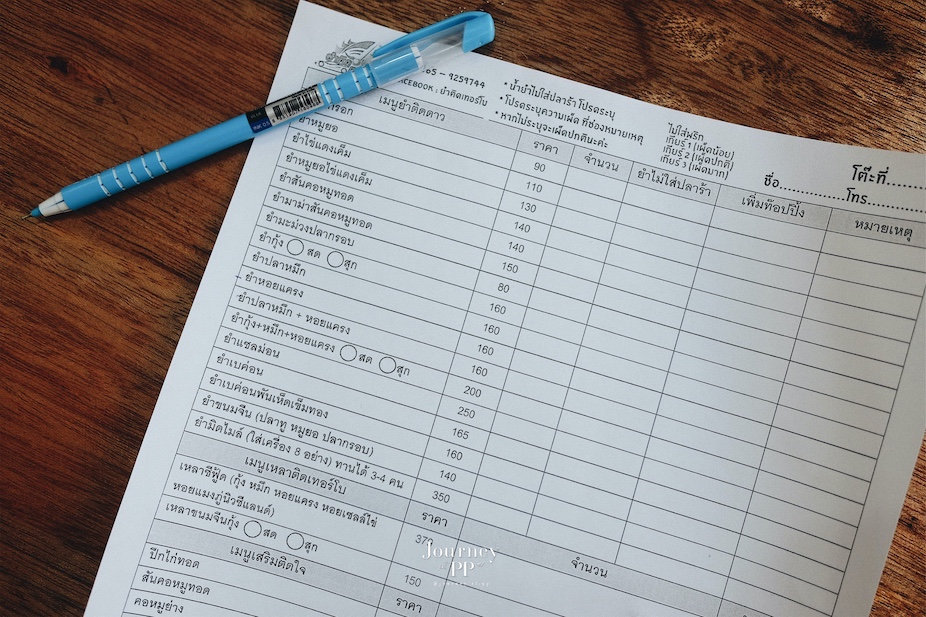 65 - 9259744
FACEBOOK : ยำคิดเทอร์โบ
• น้ำยำไม่ใส่ปลาร้า โปรดระบุ
• โปรดระบุความเผ็ด ที่ช่องหมายเหตุ
• หากไม่ระบุจะเผ็ดปกตินะค่ะ
ไม่ใส่พริก
เกียร์ 1 (เผ็ดน้อย)
เกียร์ 2 (เผ็ดปกติ)
เกียร์ 3 (เผ็ดมาก)
โต๊ะที่........
ชื่อ.............. โทร...............
เมนูยำติดดาว ราคา จำนวน ยำไม่ใส่ปลาร้า เพิ่มท๊อปปิ้ง หมายเหตุ
90
ยำหมูยอ 110
ยำไข่แดงเค็ม 130
ยำหมูยอไข่แดงเค็ม 140
ยำสันคอหมูทอด 140
ยำมาม่าสันคอหมูทอด 150
ยำมะม่วงปลากรอบ 80
ยำกุ้ง สด สุก 160
ยำปลาหมึก 160
ยำหอยแครง 160
ยำปลาหมึก + หอยแครง 160
ยำกุ้ง+หมึก+หอยแครง สด สุก 200
ยำแซลม่อน 250
ยำเบค่อน 165
ยำเบค่อนพันเห็ดเข็มทอง 160
ยำขนมจีน (ปลาทู หมูยอ ปลากรอบ) 140
ยำมิดไมล์ (ใส่เครื่อง 8 อย่าง) ทานได้ 3-4 คน 350
เมนูเหลาติดเทอร์โบ ราคา จำนวน
เหลาซีฟู้ด (กุ้ง หมึก หอยแครง หอยเชลล์ไข่
หอยแมงภู่นิวซีแลนด์) 370
เหลาขนมจีนกุ้ง สด สุก 150
เมนูเสริมติดใจ ราคา
ปีกไก่ทอด
สันคอหมูทอด
คอหมูย่าง
Journey
PP